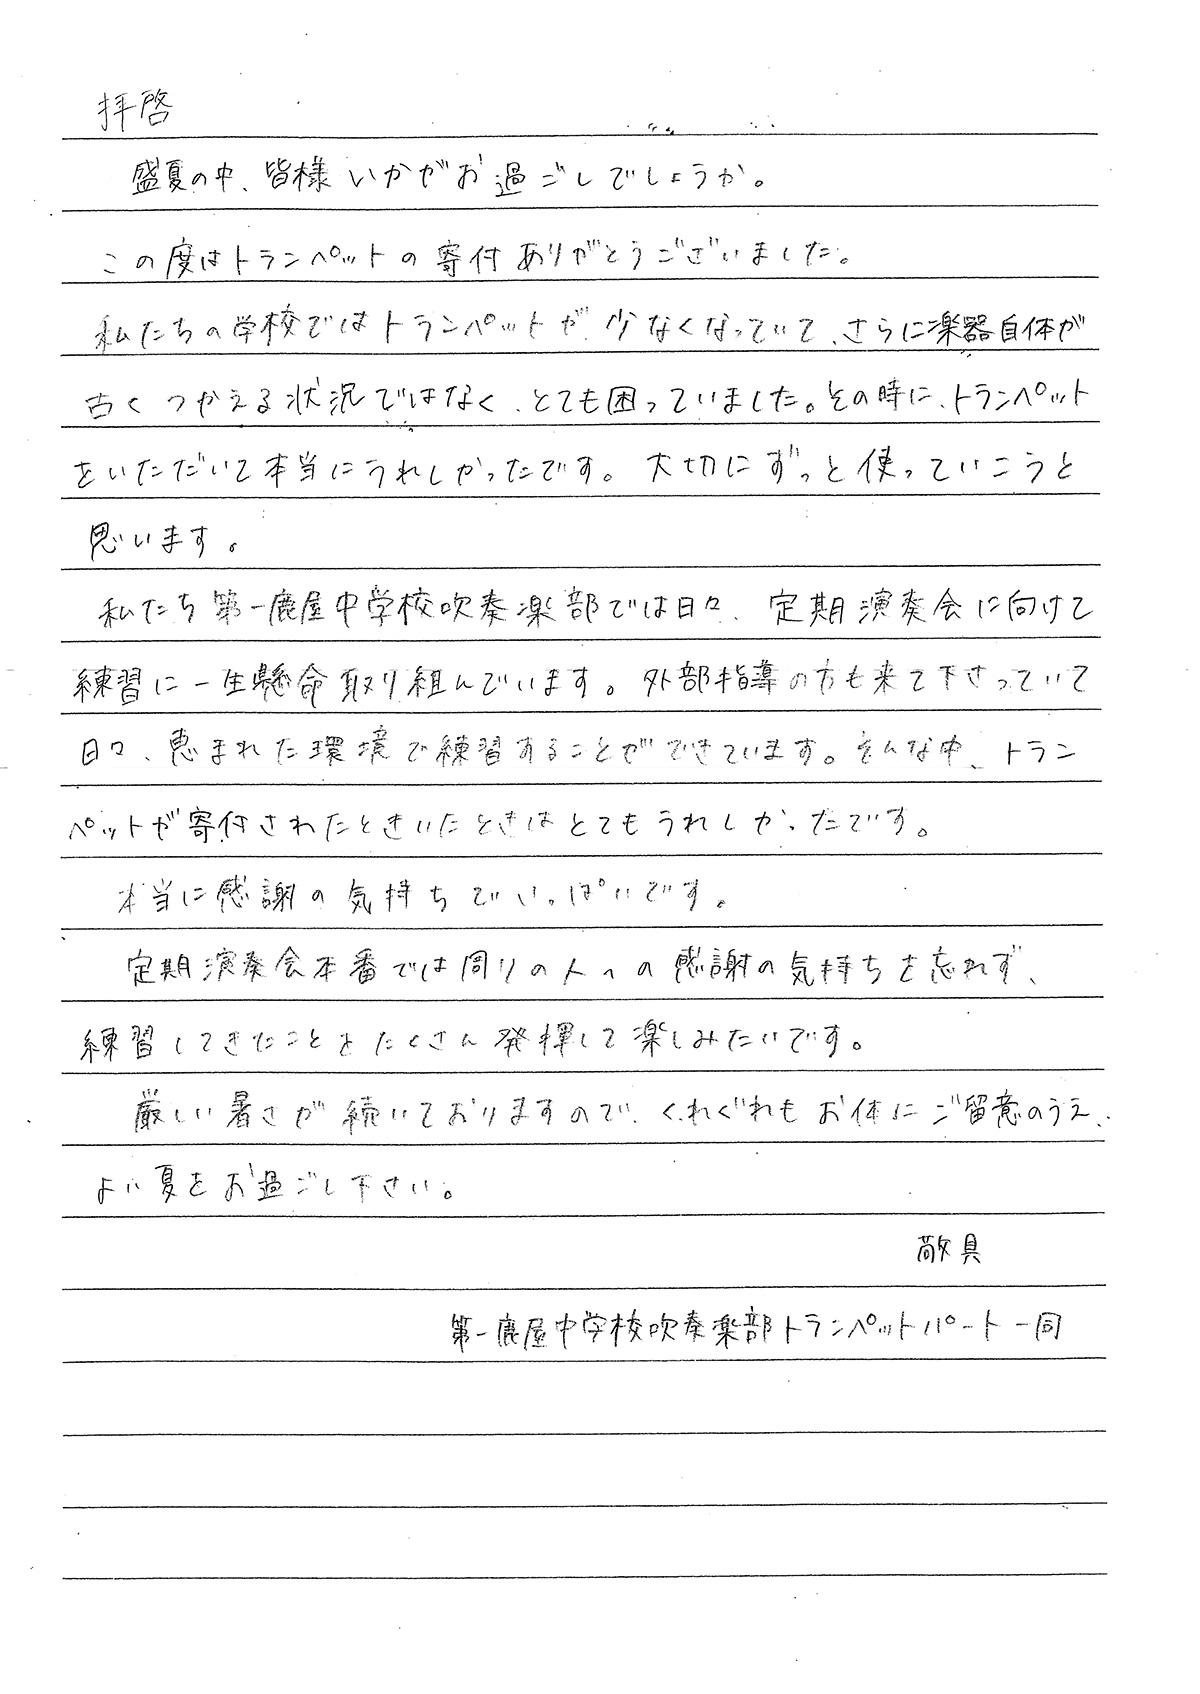 拝啓
盛夏の中、皆様いかがお過ごしでしょうか。
この度はトランペットの寄付ありがとうございました。
私たちの学校ではトランペットが少なくなっていて、さらに楽器自体が
古くつかえる状況ではなく、とても困っていました。その時に、トランペット
をいただいて本当にうれしかったです。大切にずっと使っていこうと
思います。
私たち第一鹿屋中学校吹奏楽部では日々、定期演奏会に向けて
練習に一生懸命取り組んでいます。外部指導の方も来て下さっていて
日々、恵まれた環境で練習することができています。そんな中、トラン
ペットが寄付されたときいたときはとてもうれしかったです。
本当に感謝の気持ちでいっぱいです。
定期演奏会本番では周りの人への感謝の気持ちを忘れず、
練習してきたことをたくさん発揮して楽しみたいです。
厳しい暑さが続いておりますので、くれぐれもお体にご留意のうえ、
よい夏をお過ごし下さい。
敬具
第一鹿屋中学校吹奏楽部トランペットパート一同